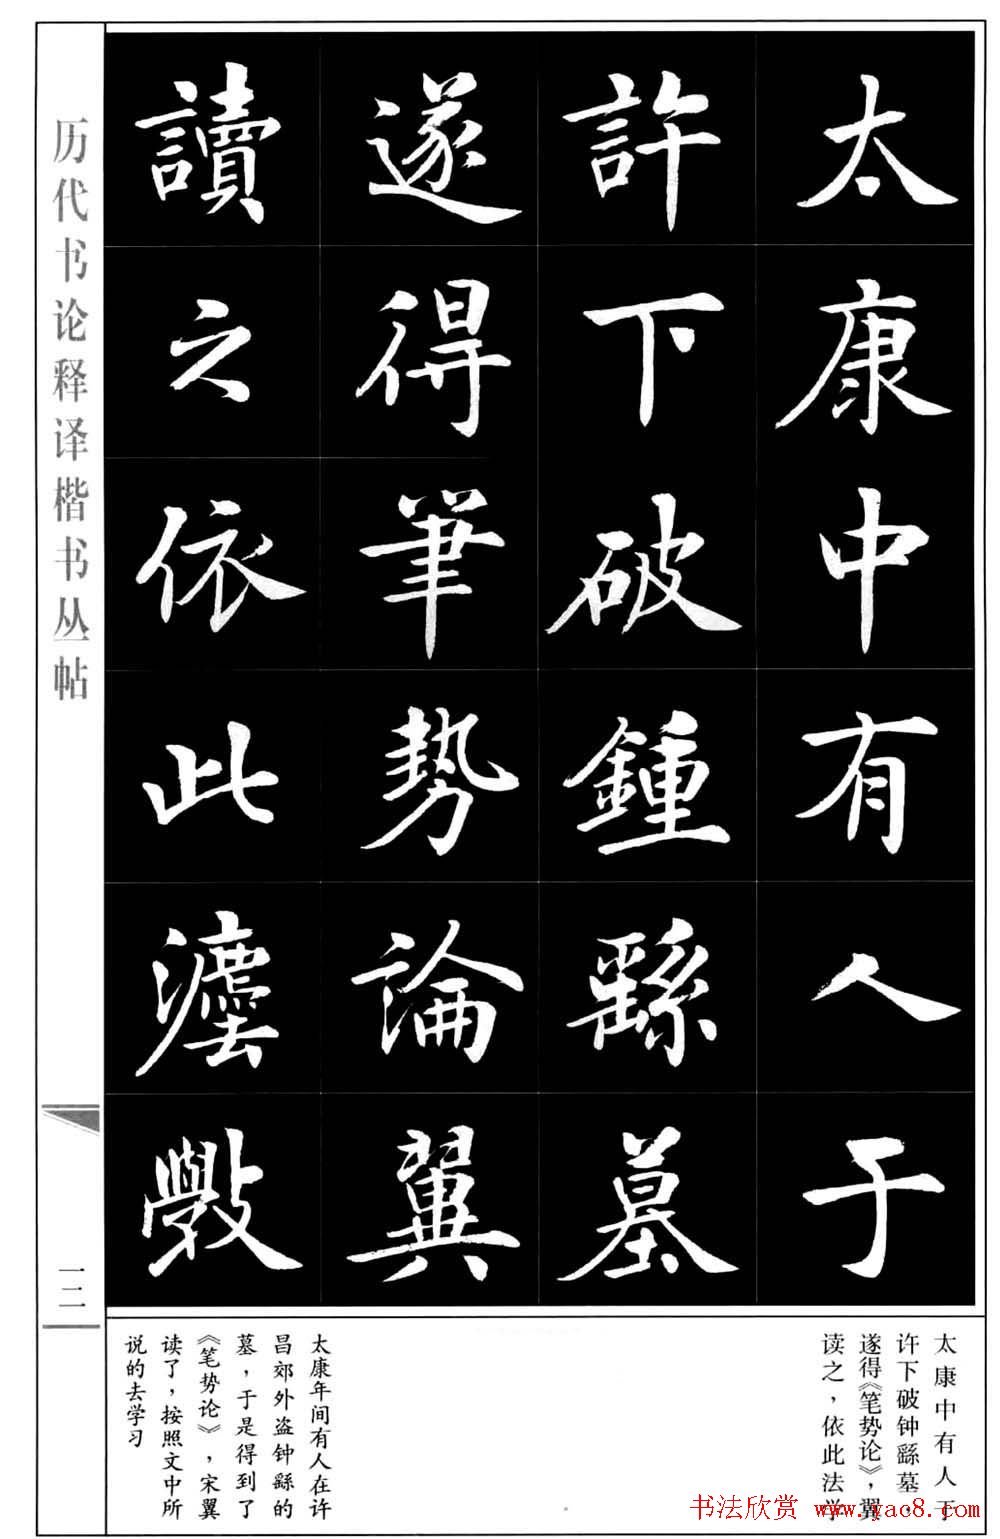 太康中有人于
許下破鍾繇墓
遂得筆勢論翼
讀之依此灋斅
历代书论释译楷书丛帖
一二
太康中有人于
许下破钟繇墓
遂得《笔势论》，翼
读之，依此法学
太康年间有人在许
昌郊外盗钟繇的
墓，于是得到了
《笔势论》，宋翼
读了，按照文中所
说的去学习
书法欣赏 www.yac8.com